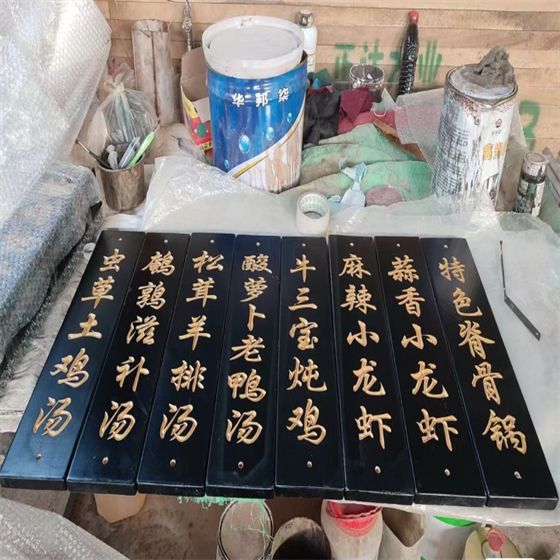 虫草土鸡汤
鹌鹑滋补汤
松茸羊排汤
酸萝卜老鸭汤
牛三宝炖鸡
麻辣小龙虾
蒜香小龙虾
特色脊骨锅
华邦柒